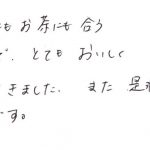 もお茶にも合う
で、とても おいしく
きました。 また 是
です。